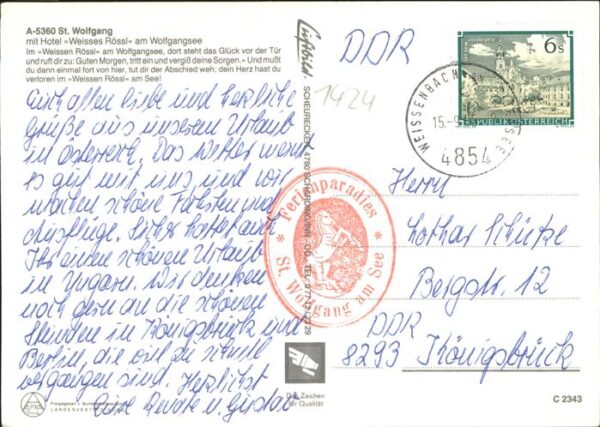 A-5360 St. Wolfgang
mit Hotel »Weisses Rössl« am Wolfgangsee
Im »Weissen Rössl« am Wolfgangsee, dort steht das Glück vor der Tür
und ruft dir zu: Guten Morgen, tritt ein und vergiß deine Sorgen. »Und mußt
du dann einmal fort von hier, tut dir der Abschied weh; dein Herz hast du
verloren im »Weissen Rössl« am See!
Euch allen liebe und herzliche
Grüße aus unserem Urlaub
in Österreich. Das Wetter meint
es gut mit uns, und wir
machen schöne Fahrten und
Ausflüge. Sicher hattet auch
Ihr einen schönen Urlaub
in Ungarn. Wir denken
noch gern an die schönen
Stunden in Königsbrück und
Berlin, die viel zu schnell
vergangen sind. Herzlichst
Eure Renate u. Gustav
Luftbild
SCHEURECKER, 4780
1424
DDR
6s
REPUBLIK ÖSTERREICH
WEISSENBACH
15.-9.
4854
* Ferienparadies *
St. Wolfgang am See
Herrn
Lothar Schütze
Bergstr. 12
DDR
8293 Königsbrück
Das Zeichen
für Qualität
C 2343